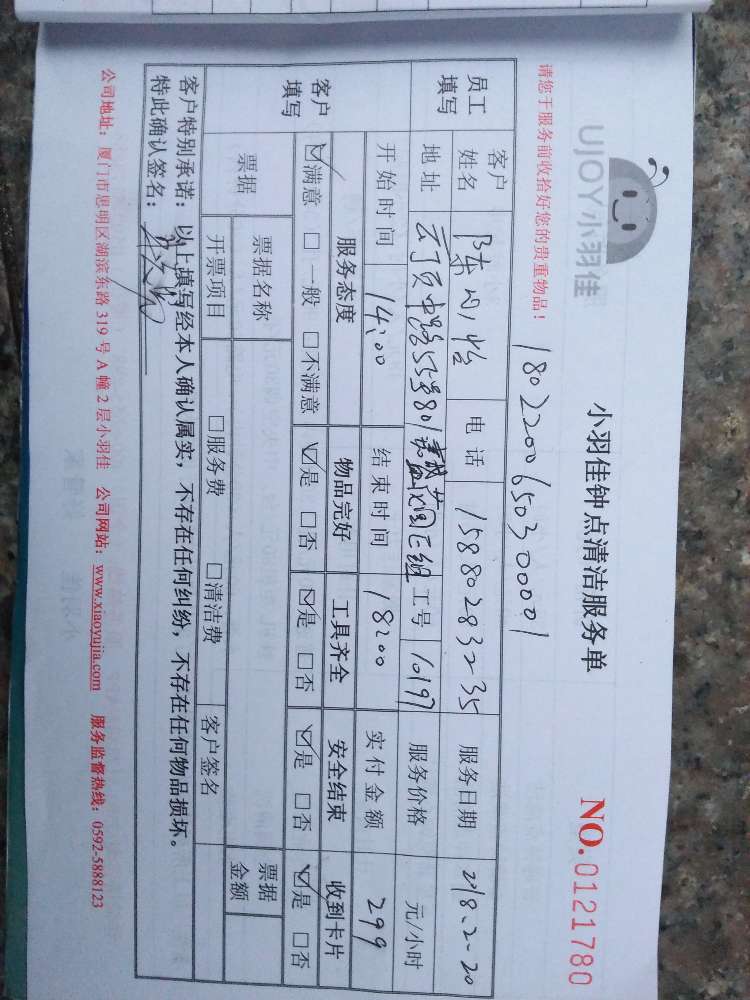 UJOY小羽佳
小羽佳钟点清洁服务单
NO.0121780
请您于服务前收拾好您的贵重物品!
180220065030001
员工填写 客户姓名 陈心怡 电话 15880283235 服务日期 218.2-20
地址 云顶中路55号801 工号 10197 服务价格 元/小时
开始时间 14:00 结束时间 18:00 实付金额 299
客户填写 服务态度 物品完好 工具齐全 安全结束 收到卡片
☑满意 □一般 □不满意 ☑是 □否 ☑是 □否 ☑是 □否 ☑是 □否
票据 票据名称 票据金额
开票项目 □服务费 □清洁费 客户签名
客户特别承诺:以上填写经本人确认属实,不存在任何纠纷,不存在任何物品损坏。
特此确认签名:
公司地址:厦门市思明区湖滨东路 319 号 A 幢 2 层小羽佳 公司网站:www.xiaoyujia.com 服务监督热线:0592-5888123